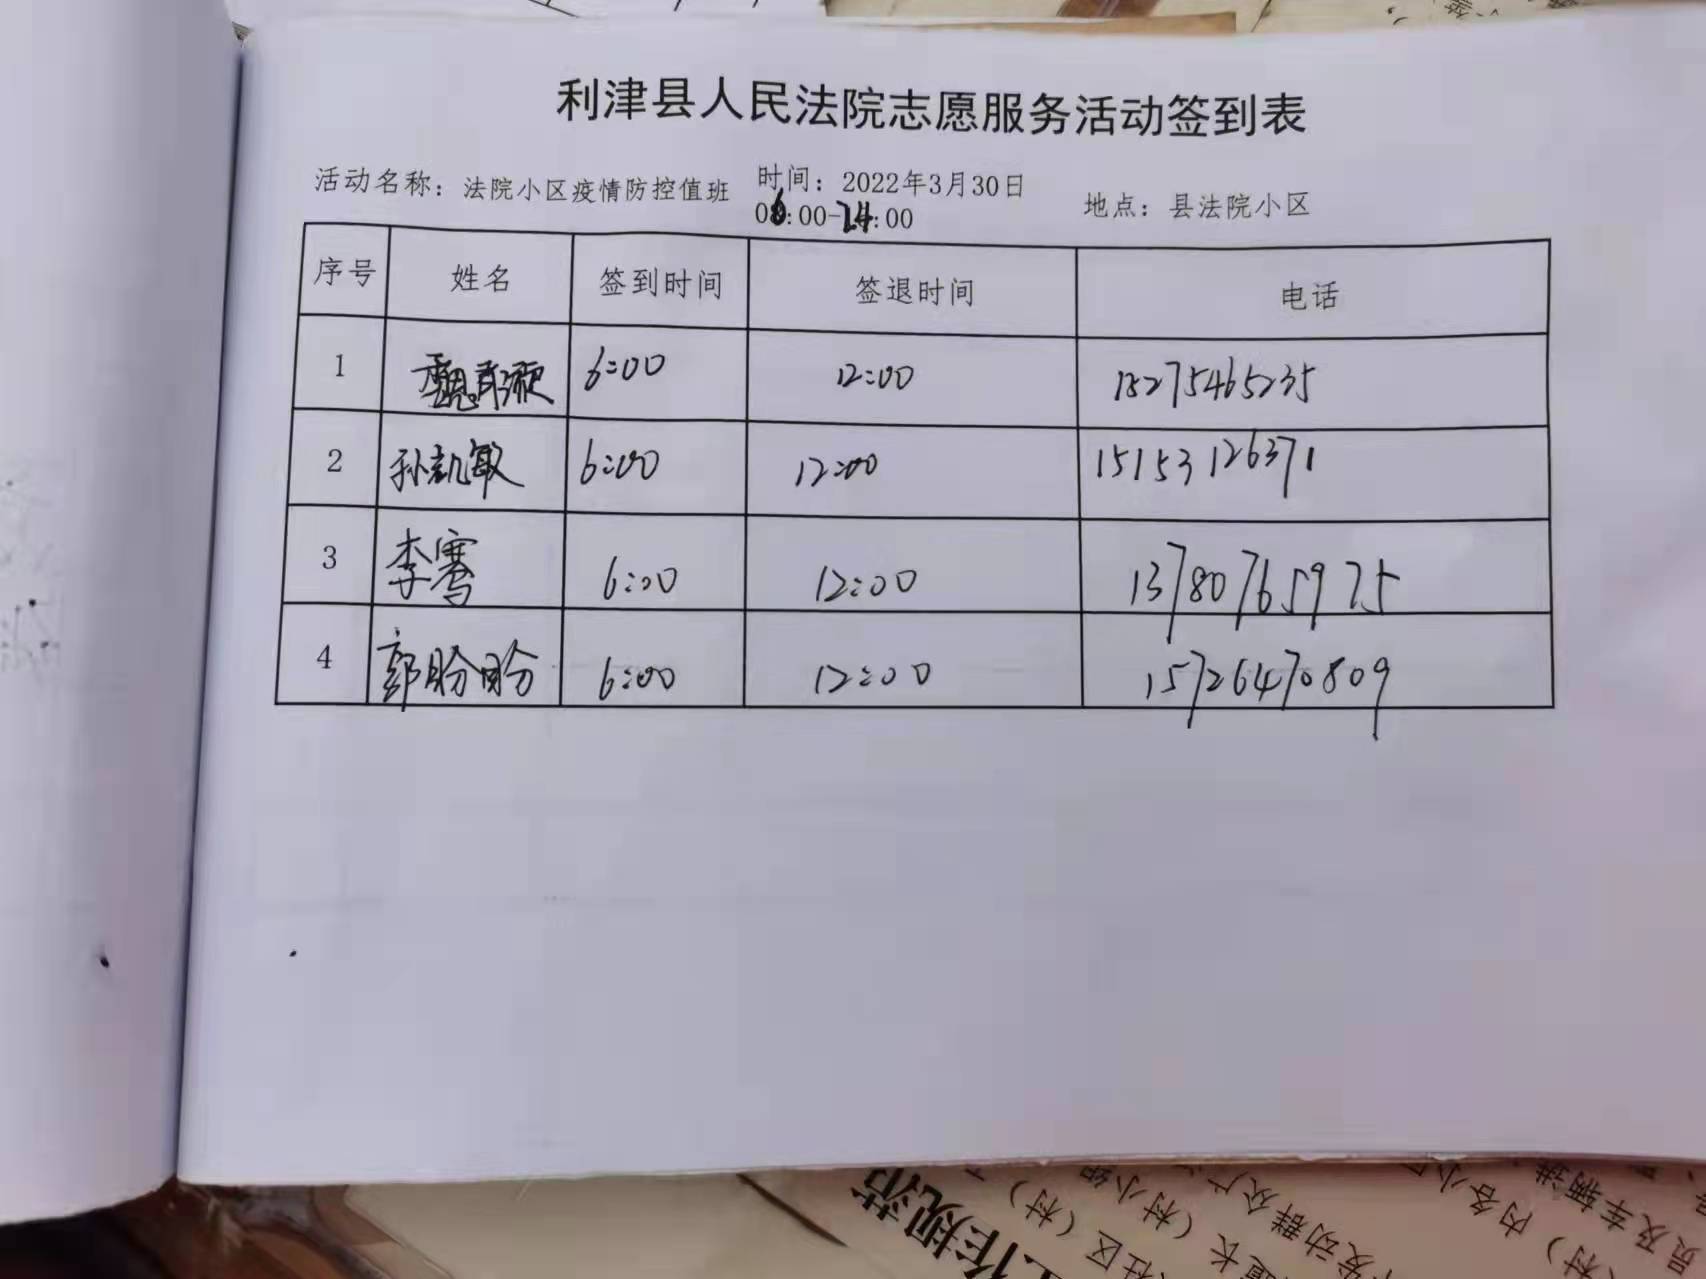 利津县人民法院志愿服务活动签到表
活动名称：法院小区疫情防控值班 时间：2022年3月30日 地点：县法院小区
06:00-24:00
序号 姓名 签到时间 签退时间 电话
1 6:00 12:00 15275465235
2 孙凯敏 6:00 12:00 15153126371
3 李骞 6:00 12:00 13780765975
4 郭盼盼 6:00 12:00 15726470809
工作规范